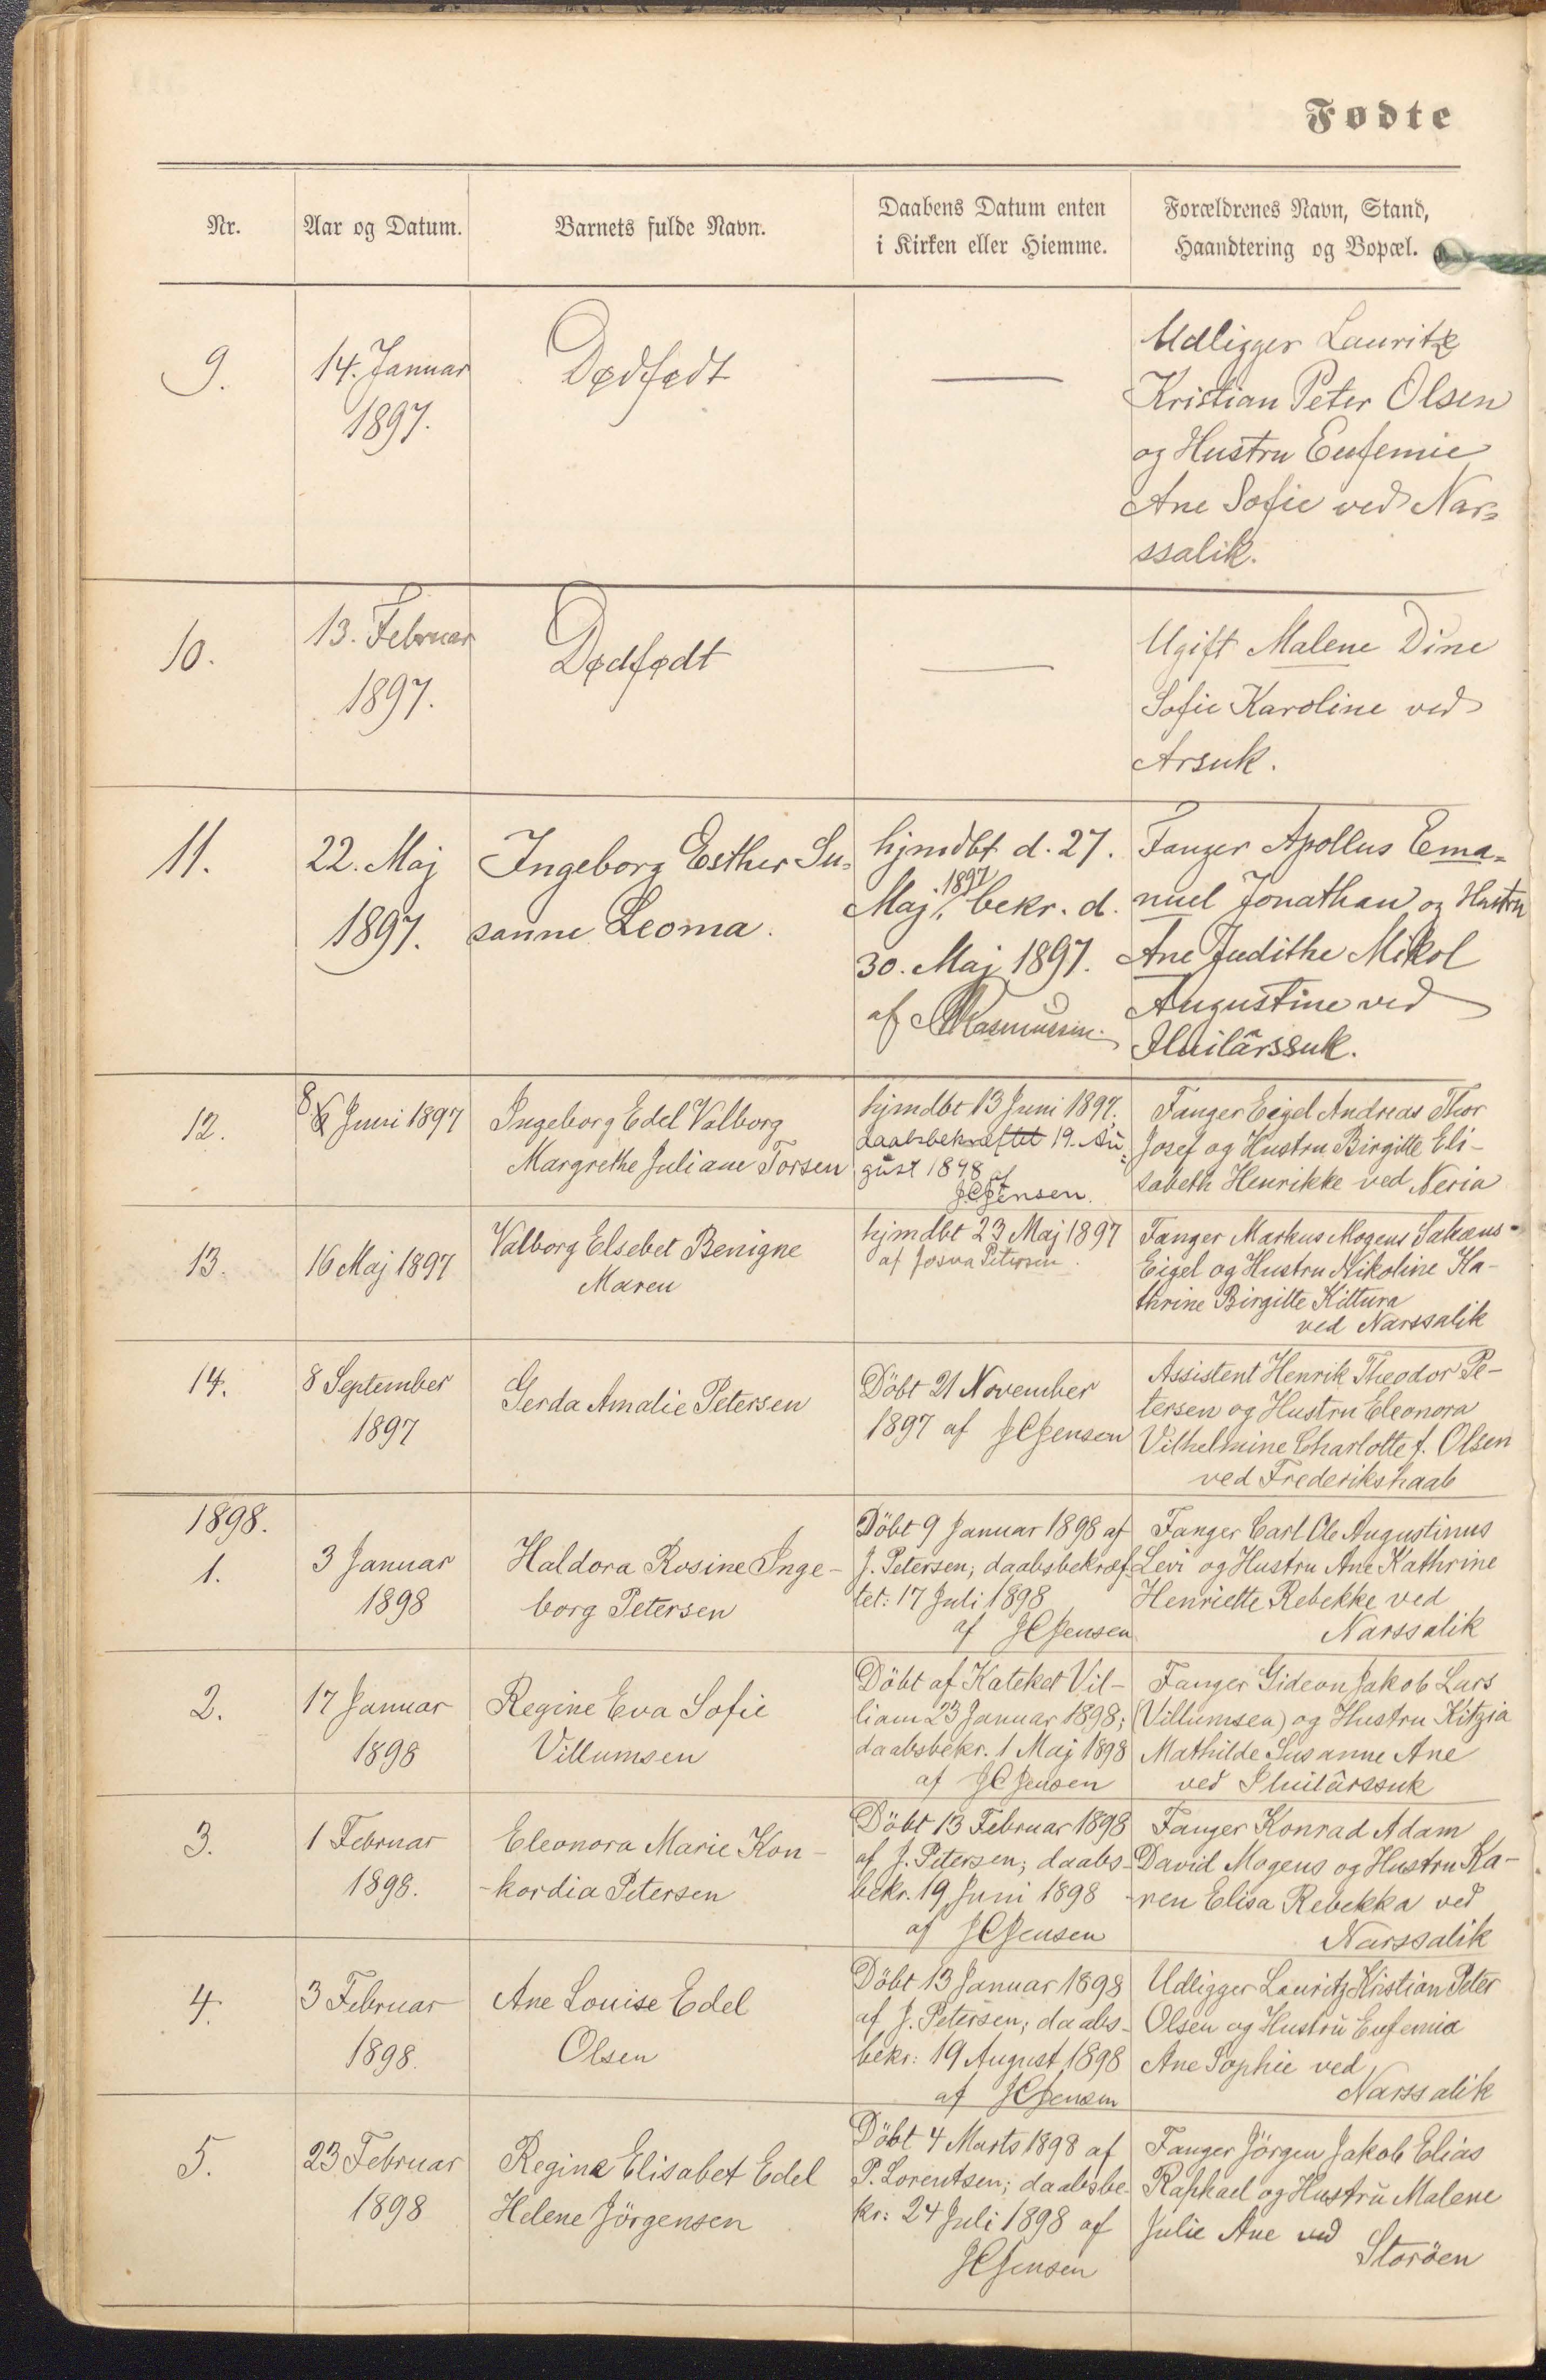 Fødte
Nr.
Aar og Datum.
Barnets fulde Navn.
Daabens Datum enten
i Kirken eller Hiemme.
Forældrenes Navn, Stand,
Haandtering og Bopæl.
9.
14. Januar
1897.
Dødfødt
Udligger Lauritz
Kristian Peter Olsen
og Hustru Eufemie
Ane Sofie ved Nar=
ssalik.
10.
13. Februar
1897.
Dødfødt
Ugift Malene Dine
Sofie Karoline ved
Arsuk.
11.
22. Maj
1897.
Ingeborg Esther Su=
sanne Leoma.
hjmdbt d. 27.
Maj 1897, bekr. d.
30. Maj 1897.
af Rasmussen.
Fanger Apollus Ema=
nuel Jonathan og Hustru
Ane Judithe Mikol
Augustine ved
Iluilârssuk.
12.
8 Juni 1897
Ingeborg Edel Valborg
Margrethe Juliane Torsen
hjmdbt 13 Juni 1897.
daabsbekræftet 19. Au=
gust 1898 af
JCJensen.
Fanger Eigel Andreas Thor
Josef og Hustru Birgitte Eli-
sabeth Henrikke ved Neria
13.
16 Maj 1897
Valborg Elsebet Benigne
Maren
hjmdbt 23 Maj 1897
af Josva Petersen.
Fanger Markus Mogens
Eigel og Hustru Nikoline Ka-
thrine Birgitte Kittura
ved Narssalik
14.
8 September
1897
Gerda Amalie Petersen
Döbt 21 November
1897 af JCJensen
Assistent Henrik Theodor Pe-
tersen og Hustru Eleonora
Vilhelmine Charlotte f. Olsen
ved Frederikshaab
1898.
1.
3 Januar
1898
Haldora Rosine Inge-
borg Petersen
Döbt 9 Januar 1898 af
J. Petersen; daabsbekræf-
tet: 17 Juli 1898
af JCJensen
Fanger Carl Ole Augustinus
Levi og Hustru Ane Kathrine
Henriette Rebekke ved
Narssalik
2.
17 Januar
1898
Regine Eva Sofie
Villumsen
Döbt af Kateket Vil-
liam 23 Januar 1898;
daabsbekr. 1 Maj 1898
af JCJensen
Fanger Gideon Jakob Lars
(Villumsen) og Hustru Kitzia
Mathilde Susanne Ane
ved Iluilârssuk
3.
1 Februar
1898.
Eleonora Marie Kon-
-kordia Petersen
Döbt 13 Februar 1898
af J. Petersen; daabs-
bekr. 19 Juni 1898
af JCJensen
Fanger Konrad Adam
David Mogens og Hustru Ka-
ren Elisa Rebekka ved
Narssalik
4.
3 Februar
1898.
Ane Louise Edel
Olsen
Döbt 13 Januar 1898
af J. Petersen; daabs-
bekr: 19 August 1898
af JCJensen
Udligger Lauritz Kristian Peter
Olsen og Hustru Eufemia
Ane Sophie ved
Narssalik
5.
23 Februar
1898
Regine Elisabet Edel
Helene Jörgensen
Döbt 4 Marts 1898 af
P. Lorentsen; daabsbe-
kr: 24 Juli 1898 af
JCJensen
Fanger Jörgen Jakob Elias
Raphael og Hustru Malene
Julie Ane ved
Storöen